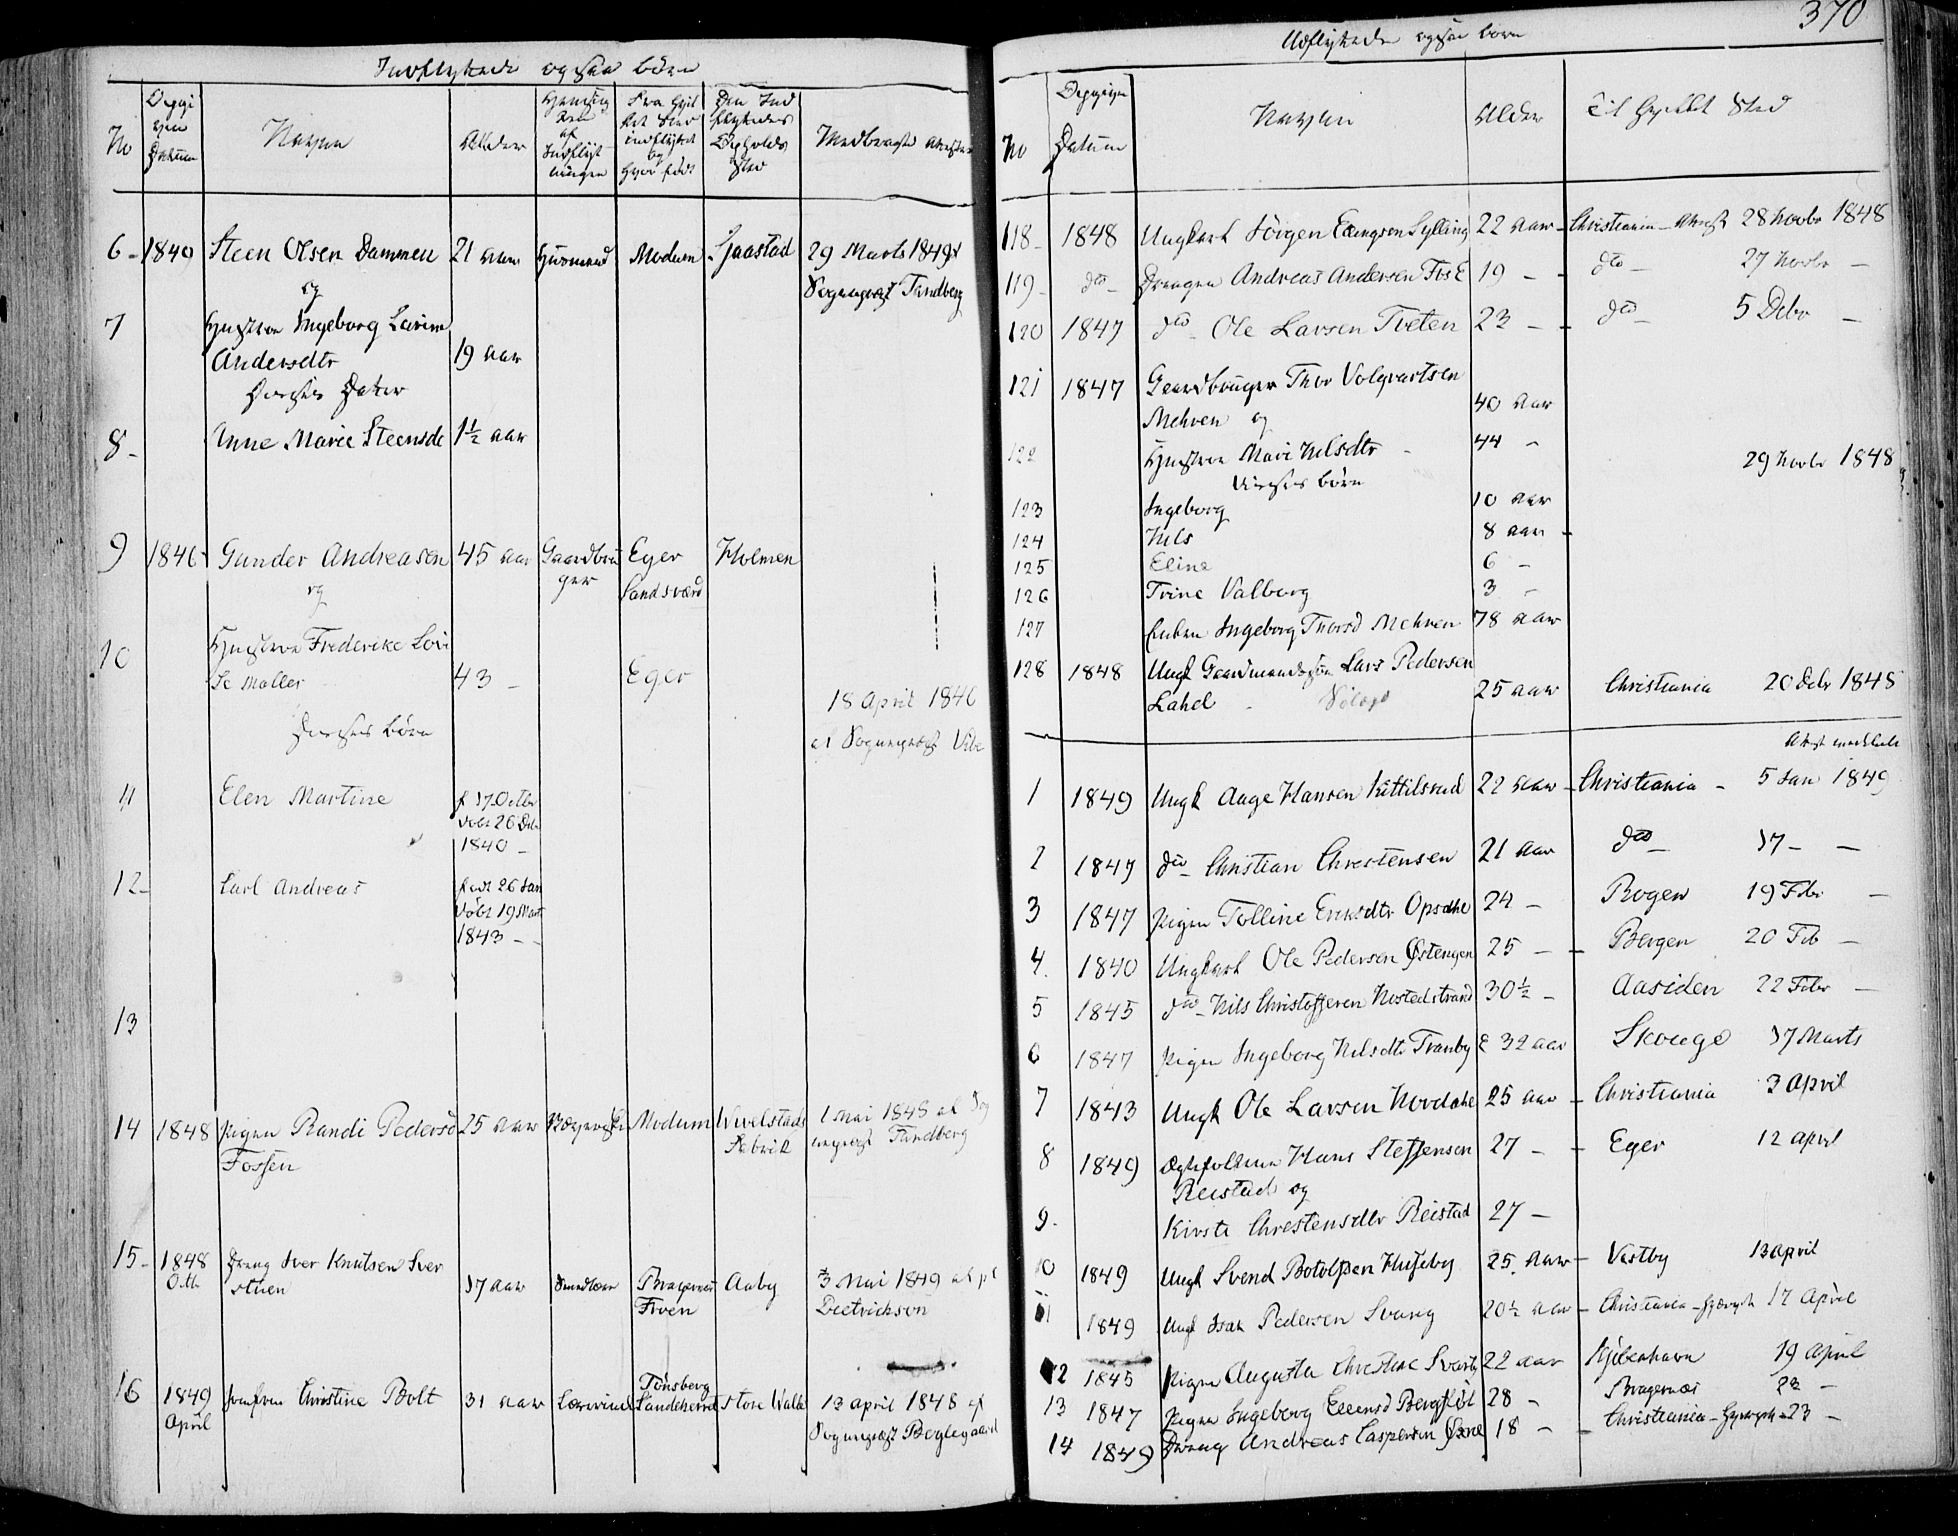 370
Indflyttede ogsaa børn
No
Opgi
vne
Datum
Navne
Alder
Hensig
ten
af
Indflyt
ningen
Fra hvil
ket Sted
indflyttet
og
hvor født
Den Ind
flyttedes
Opholds
Sted
Medbragte Attester
6 - 1849 Steen Olsen Dammen 21 aar Huusmand Modum Gaastad 29 Marts 1849 af
og Sognepræst Tandberg
7 Hustroe Ingeborg Larine
Andersdtr 19 aar
Derses Datter
8 - Anne Marie Steensdt 1½ aar
9 1846 Gunder Andreasen 45 aar Gaardbru Eger Holmen
og ger Sandsværd
10 Hustroe Frederike Lovi
se Møller 43 - Eger
18 April 1846
Derses børn af Sognepræst Vibe
11 Elen Martine f 17 Octbr
døbt 26 Deb
1840 -
12 - Carl Andreas født 26 Jan
døbt 19 Marts
1843 - -
13
14 1848 Pigen Randi Pedersd 25 aar Modum Wivelstads 1 Mai 1848 af Sog
Fossen Fabrik nepræst Tandberg
15 - 1848 Dreng Iver Knutsen Iver
Octb stuen 17 aar Bragernæs Aaby 3 Mai 1849 af
Froen Dietrichson
16 1849 Jomfru Christine Bolt 31 aar Lærerinde Tønsberg
April Sandeherred store Valle 13 April 1848 af
Sognepræst Beglegaard
Udflyttede ogsaa børn
No
Opgivne
Datum
Navne
Alder
Til hvilket Sted
118 - 1848 Ungkarl Jörgen Evensen Sylling 22 aar - Christiania - Attest 28 Novbr 1848
119 - do - Drengen Andreas Andersen Fos E 19 - - do - 27 Novbr -
120 1847 do - Ole Larsen Tveten 23 - - do - 5 Debr -
121 1847 Gaardbruger Thor Volqvartsen
Mehren og 40 aar
122 Hustroe Mari Nilsdtr - 44 -
Derses børn 29 Novbr 1848
123 Ingeborg 10 aar
124 Nils 8 aar -
125 Eline 6 -
126 Trine Valborg 3 -
127 Enken Ingeborg Thorsd Mehren 78 aar
128 1848 Ungk Gaardmandssøn Lars Pedersen
Lahel - 25 aar Christiania 20 Debr 1848
Attest meddeelt
1 1849 Ungk Aage Hansen Kittilsrud 22 aar - Christiania - 5 Jan 1849
2 1847 do - Christian Christensen 21 aar do - 17 - -
3 1847 Pigen Tolline Eriksdtr Opsahl 24 - Bogen 19 Febr -
4. 1840 Ungkarl Ole Pedersen Østengen 25 - - Bergen 20 Feb -
5 1845 do - Nils Christoffersen Nøstedstrand 30½ - Aasiden 22 Febr -
6 1847 Pigen Ingeborg Nilsdtr Tranby E 32 aar Skouge 17 Marts
7 1843 Ungk Ole Larsen Nordahl 25 aar - Christiania 3 April
8 1849 Ægtefolkene Hans Steffensen 27 - - Eger 12 April
Reistad og
9. Kirsti Christensdtr Reistad 27 -
10 1849 Ungk Svend Botolfsen Huseby 25 aar - Vestby 13 April
11 1849 Ungk Isak Pedersen Svang 20½ aar - Christiania - 17 April
12 1845 Pigen Augusta Christine Svang 22 aar Kjöbenhavn 19 April
13 1847 Pigen Ingeborg Evensd Bergfløt 28 - Bragernæs 23 -
14 1849 Dreng Andreas Caspersen Øxne 18 - - Christiania - 23 -